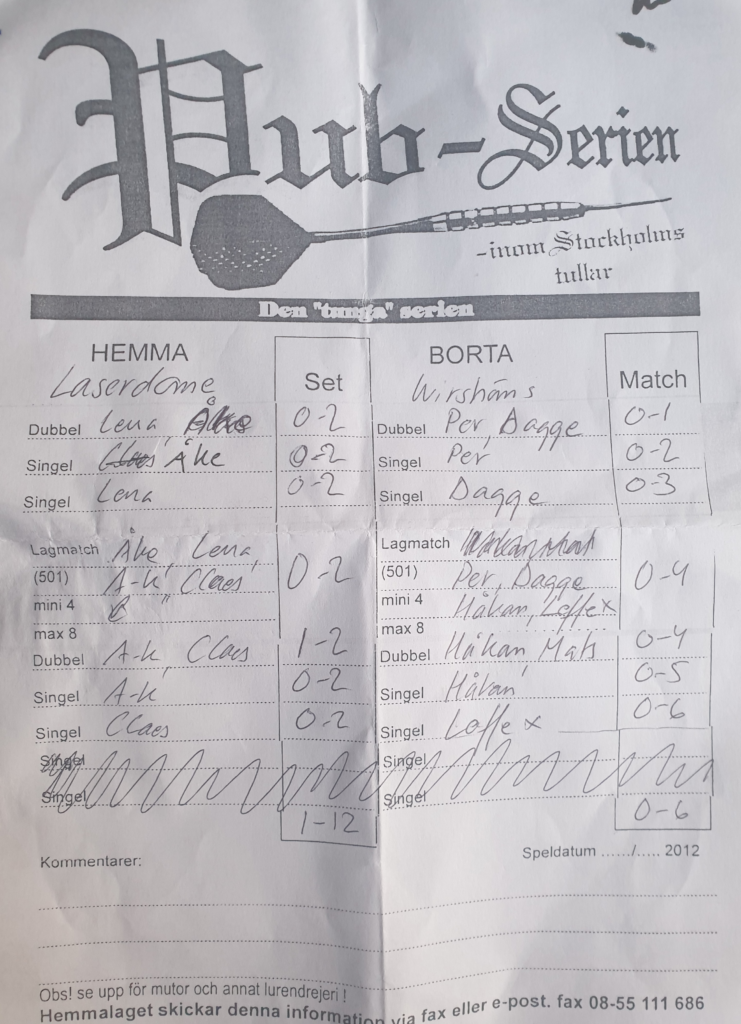 Pub-Serien
-inom Stockholms
tullar
Den "tunga" serien
HEMMA Set BORTA Match
Laserdome Wirshöms
Dubbel Lena, Åke 0-2 Dubbel Per, Dagge 0-1
Singel Claes Åke 0-2 Singel Per 0-2
Singel Lena 0-2 Singel Dagge 0-3
Lagmatch Åke, Lena, Lagmatch
(501) A-k, Claes 0-2 (501) Per, Dagge 0-4
mini 4 mini 4 Håkan, Leffe x
max 8 max 8
Dubbel A-k, Claes 1-2 Dubbel Håkan, Mats 0-4
Singel A-k 0-2 Singel Håkan 0-5
Singel Claes 0-2 Singel Leffe x 0-6
Singel Singel
Singel Singel
1-12 0-6
Kommentarer: Speldatum ....../..... 2012
Obs! se upp för mutor och annat lurendrejeri !
Hemmalaget skickar denna information via fax eller e-post. fax 08-55 111 686